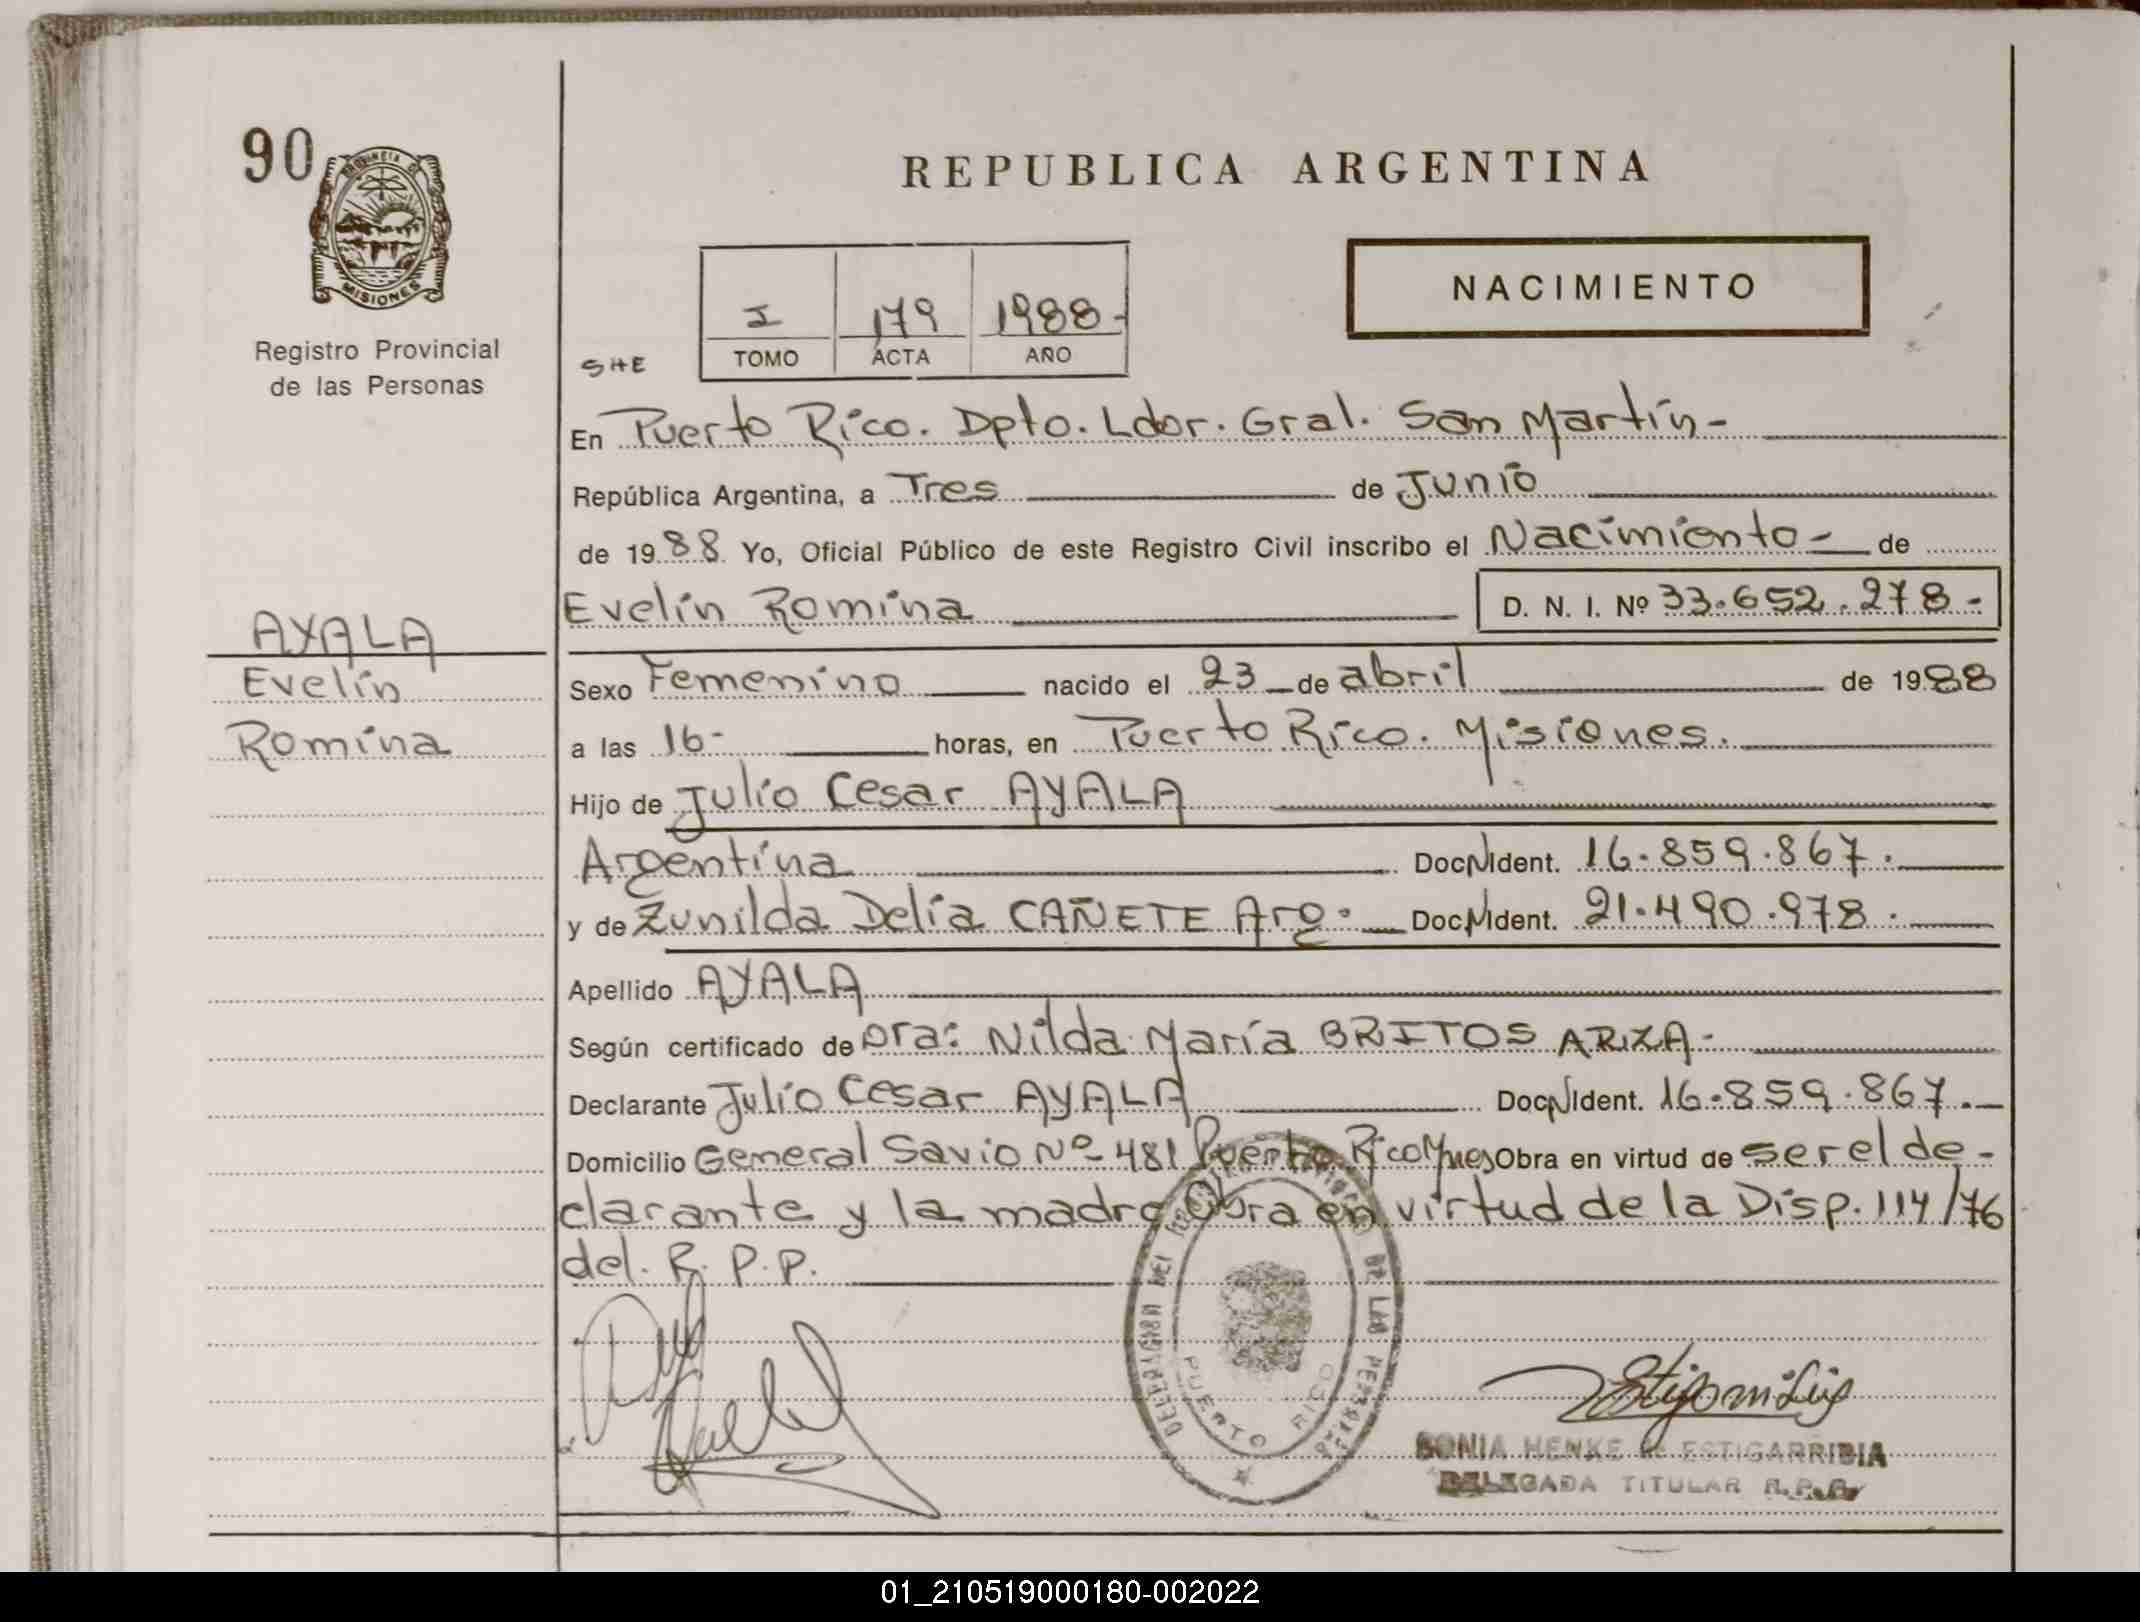 90
PROVINCIA DE
MISIONES
Registro Provincial
de las Personas
REPUBLICA ARGENTINA
NACIMIENTO
I 179 1988-
TOMO ACTA AÑO
SHE
En Puerto Rico. Dpto. Ldor. Gral. San Martín-
República Argentina, a Tres de Junio
de 1988 Yo, Oficial Público de este Registro Civil inscribo el Nacimiento- de
Evelin Romina D. N. I. Nº 33.652.278-
AYALA
Evelin
Romina
Sexo Femenino nacido el 23 de abril de 1988
a las 16- horas, en Puerto Rico. Misiones.
Hijo de Julio Cesar AYALA
Argentina DocNIdent. 16.859.867.
y de Zunilda Delia CAÑETE Arg. DocNIdent. 21.490.978.
Apellido AYALA
Según certificado de Dra: Nilda María BRITOS ARZA-
Declarante Julio Cesar AYALA DocNIdent. 16.859.867.
Domicilio General Savio Nº 481 Puerto Rico Mnes Obra en virtud de ser el de-
clarante y la madre Obra en virtud de la Disp. 114/76
del. R. P. P.
DELEGACION DEL REGISTRO DE LAS PERSONAS
PUERTO RICO
SONIA HENKE de ESTIGARRIBIA
DELEGADA TITULAR R.P.P.
01_210519000180-002022